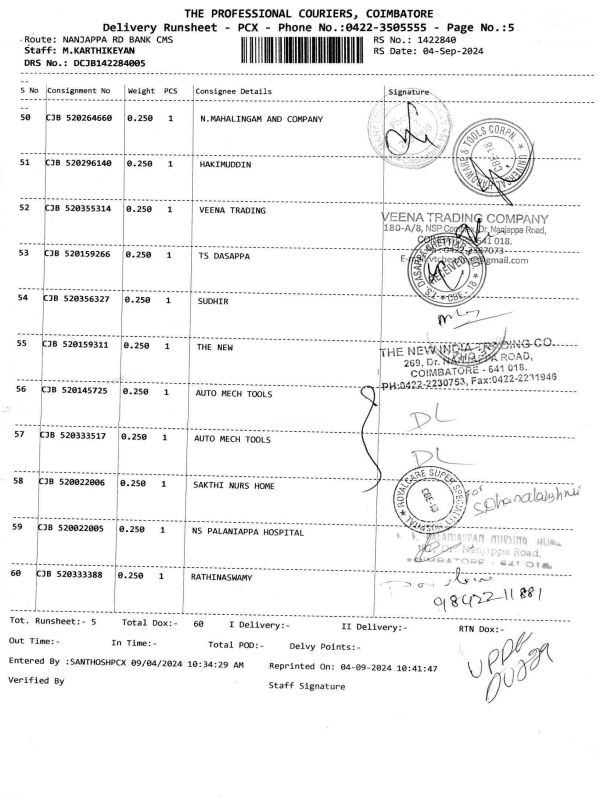 THE PROFESSIONAL COURIERS, COIMBATORE
Delivery Runsheet - PCX - Phone No.:0422-3505555 - Page No.:5
Route: NANJAPPA RD BANK CMS RS No.: 1422840
Staff: M.KARTHIKEYAN RS Date: 04-Sep-2024
DRS No.: DCJB142284005
S No Consignment No Weight PCS Consignee Details Signature
50 CJB 520264660 0.250 1 N.MAHALINGAM AND COMPANY
51 CJB 520296140 0.250 1 HAKIMUDDIN
UNIVERSAL HARDWARE & TOOLS CORPN.
CBE-18
52 CJB 520355314 0.250 1 VEENA TRADING
VEENA TRADING COMPANY
180-A/8, NSP Complex, Dr. Nanjappa Road,
641 018.
53 CJB 520159266 0.250 1 TS DASAPPA
@gmail.com
RECEIVED
CBE - 18
54 CJB 520356327 0.250 1 SUDHIR
55 CJB 520159311 0.250 1 THE NEW
THE NEW INDIA TRADING CO.
269, Dr. NANJAPPA ROAD,
COIMBATORE - 641 018.
PH:0422-2230753, Fax:0422-2231946
56 CJB 520145725 0.250 1 AUTO MECH TOOLS
DL
57 CJB 520333517 0.250 1 AUTO MECH TOOLS
DL
58 CJB 520022006 0.250 1 SAKTHI NURS HOME
ROYALCARE SUPER SPECIALITY HOSPITAL
CBE-18
for
59 CJB 520022005 0.250 1 NS PALANIAPPA HOSPITAL
PALANIAPPAN NURSING HOME
Dr. Nanjappa Road,
COIMBATORE - 641 018.
60 CJB 520333388 0.250 1 RATHINASWAMY
9842211881
Tot. Runsheet:- 5 Total Dox:- 60 I Delivery:- II Delivery:- RTN Dox:-
Out Time:- In Time:- Total POD:- Delvy Points:-
Entered By :SANTHOSHPCX 09/04/2024 10:34:29 AM Reprinted On: 04-09-2024 10:41:47
Verified By Staff Signature